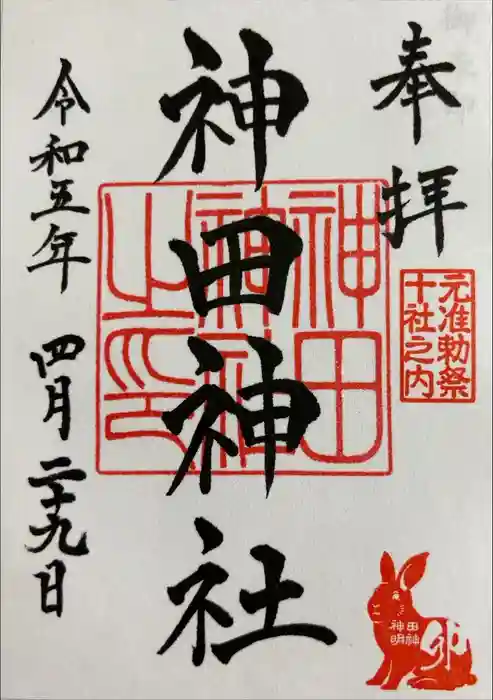 奉拝
元准勅祭
十社之内
神田神社
神田
神社
之印
令和五年 四月二十九日
田神
神明
卯